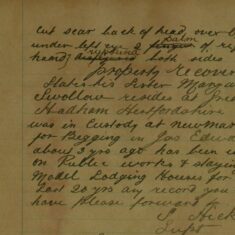 cut scar back of head over l
under left eye 2 palm of ri
hand, ruptured both sides
Property Recover
States his Sister Margar
Swallow resides at Gree
Hadham Hertfordshire
was in Custody at newmar
for Begging as Jas Edwa
about 3 yrs ago has been w
on Public works & staying
Model Lodging Houses for
last 20 yrs any record you
have Please forward to
Supt